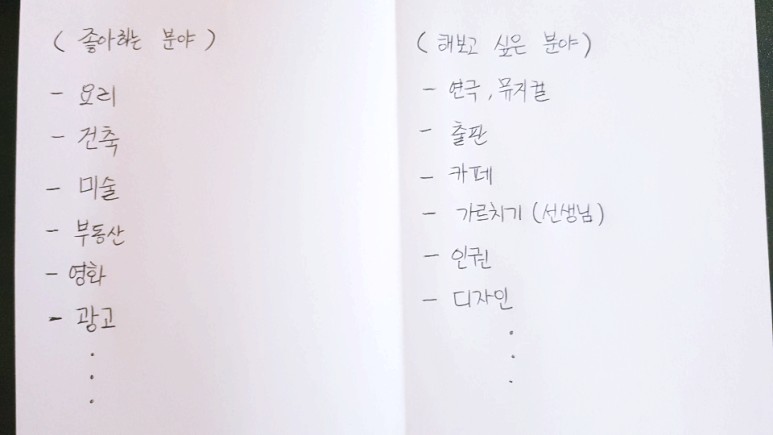 ( 좋아하는 분야 )
- 요리
- 건축
- 미술
- 부동산
- 영화
- 광고
( 해보고 싶은 분야 )
- 연극, 뮤지컬
- 출판
- 카페
- 가르치기 (선생님)
- 인권
- 디자인